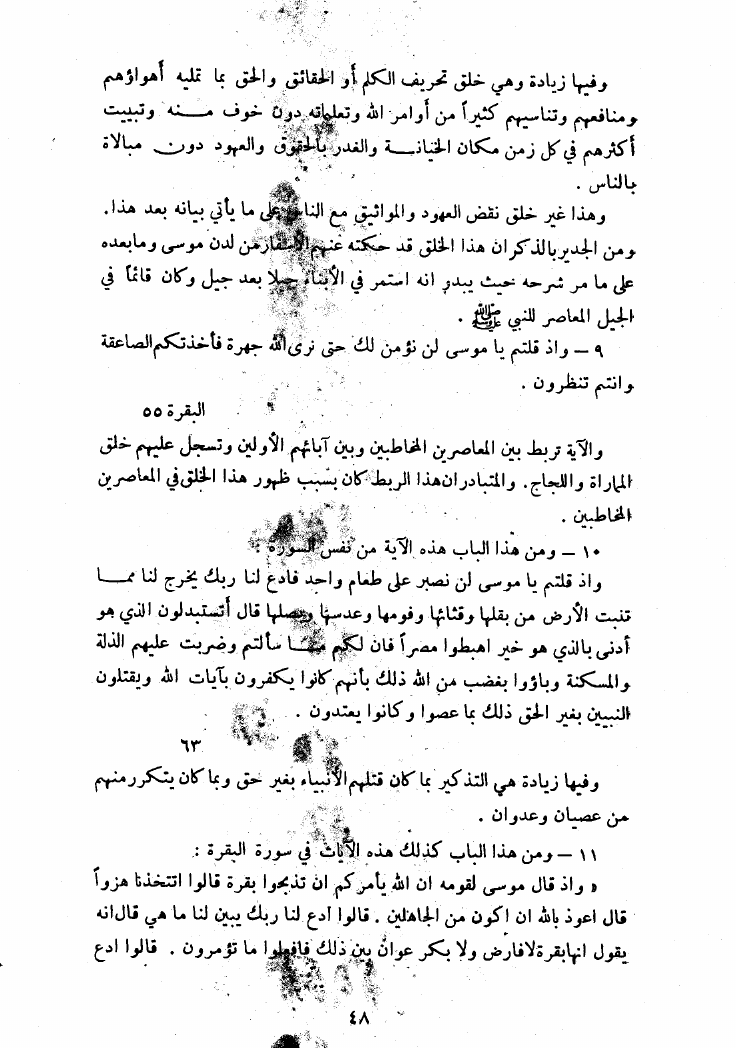 وفيها زيادة وهي خلق تحريف الكلم أو الحقائق والحق بما تمليه أهواؤهم
ومنافعهم وتناسيهم كثيراً من أوامر الله وتعلماته دون خوف منه وتبييت
أكثرهم في كل زمن مكان الخيانة والغدر بالحقوق والعهود دون مبالاة
بالناس .
وهذا غير خلق نقض العهود والمواثيق مع الناس على ما يأتي بيانه بعد هذا.
ومن الجدير بالذكر ان هذا الخلق قد حكته عنهم الأسفار من لدن موسى وما بعده
على ما مر شرحه حيث يبدو انه استمر في الأبناء جيلا بعد جيل وكان قائماً في
الجيل المعاصر للنبي ﷺ .
٩ – واذ قلتم يا موسى لن نؤمن لك حتى نرى الله جهرة فأخذتكم الصاعقة
وانتم تنظرون .
البقرة ٥٥
والآية تربط بين المعاصرين المخاطبين وبين آبائهم الأولين وتسجل عليهم خلق
المماراة واللجاج. والمتبادر ان هذا الربط كان بسبب ظهور هذا الخلق في المعاصرين
المخاطبين .
١٠ – ومن هذا الباب هذه الآية من نفس السورة :
واذ قلتم يا موسى لن نصبر على طعام واحد فادع لنا ربك يخرج لنا مما
تنبت الأرض من بقلها وقثائها وفومها وعدسها وبصلها قال أتستبدلون الذي هو
أدنى بالذي هو خير اهبطوا مصراً فان لكم ما سألتم وضربت عليهم الذلة
والمسكنة وباؤوا بغضب من الله ذلك بأنهم كانوا يكفرون بآيات الله ويقتلون
النبيين بغير الحق ذلك بما عصوا وكانوا يعتدون .
٦٣
وفيها زيادة هي التذكير بما كان قتلهم الأنبياء بغير حق وبما كان يتكرر منهم
من عصيان وعدوان .
١١ – ومن هذا الباب كذلك هذه الآيات في سورة البقرة :
« واذ قال موسى لقومه ان الله يأمركم ان تذبحوا بقرة قالوا اتتخذنا هزواً
قال اعوذ بالله ان اكون من الجاهلين . قالوا ادع لنا ربك يبين لنا ما هي قال انه
يقول انها بقرة لا فارض ولا بكر عوان بين ذلك فافعلوا ما تؤمرون . قالوا ادع
٤٨